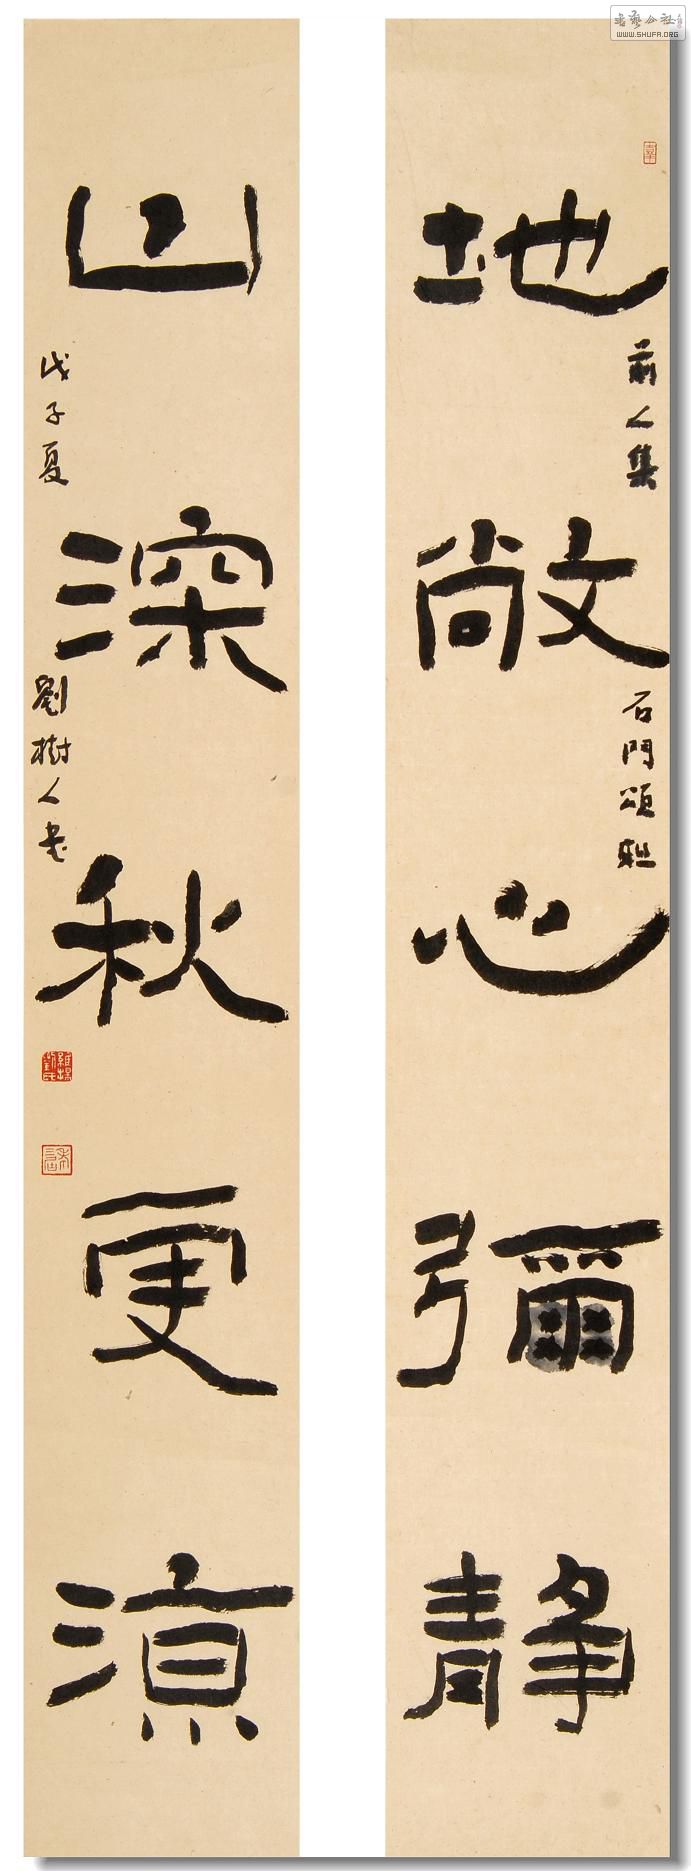 書藝公社
WWW.SHUFA.ORG
地敞心彌靜
前人集石門頌聯
山深秋更涼
戊子夏劉樹人書